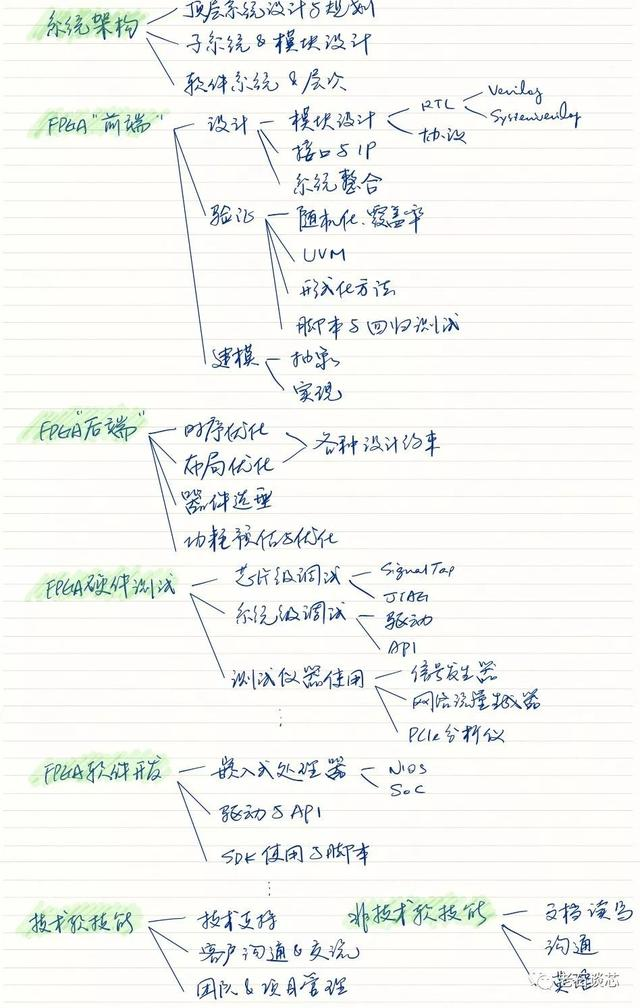 顶层系统设计与规划
系统架构
子系统&模块设计
软件系统&层次
FPGA"前端"
设计
模块设计
RTL
Verilog
SystemVerilog
协议
接口与IP
系统整合
验证
随机化、覆盖率
UVM
形式化方法
脚本与回归测试
建模
抽象
实现
FPGA"后端"
时序优化
布局优化
各种设计约束
器件选型
功耗预估与优化
FPGA硬件测试
芯片级调试
SignalTap
JTAG
系统级调试
驱动
API
测试仪器使用
信号发生器
网络流量生成器
PCIe分析仪
FPGA软件开发
嵌入式处理器
NIOS
SoC
驱动与API
SDK使用与脚本
技术软技能
技术支持
客户沟通&交流
团队&项目管理
非技术软技能
文档读写
沟通
英语
老石谈芯